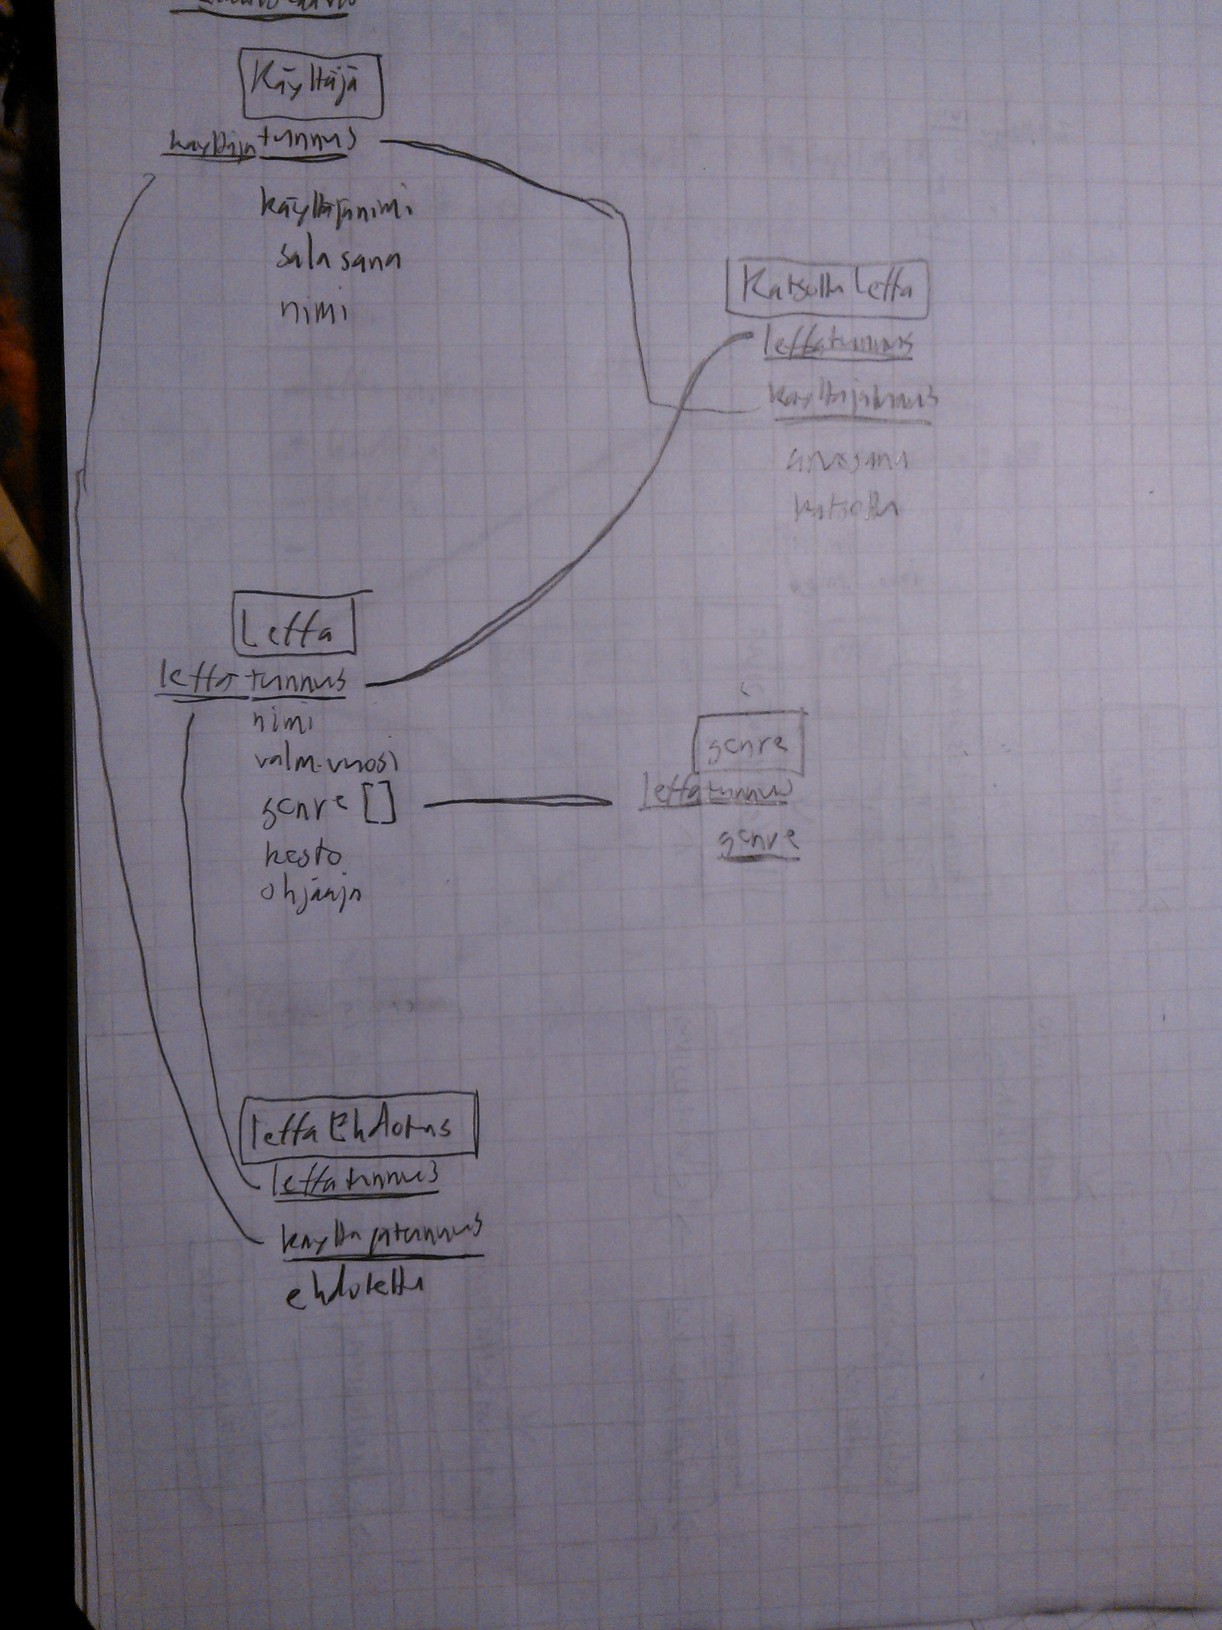 Käyttäjä
käyttäjätunnus
käyttäjänimi
salasana
nimi
Katsottu Leffa
leffatunnus
käyttäjätunnus
arvosana
katsottu
Leffa
leffatunnus
nimi
valm.vuosi
genre []
kesto
ohjaaja
genre
leffatunnus
genre
leffaEhdotus
leffatunnus
käyttäjätunnus
ehdotettu